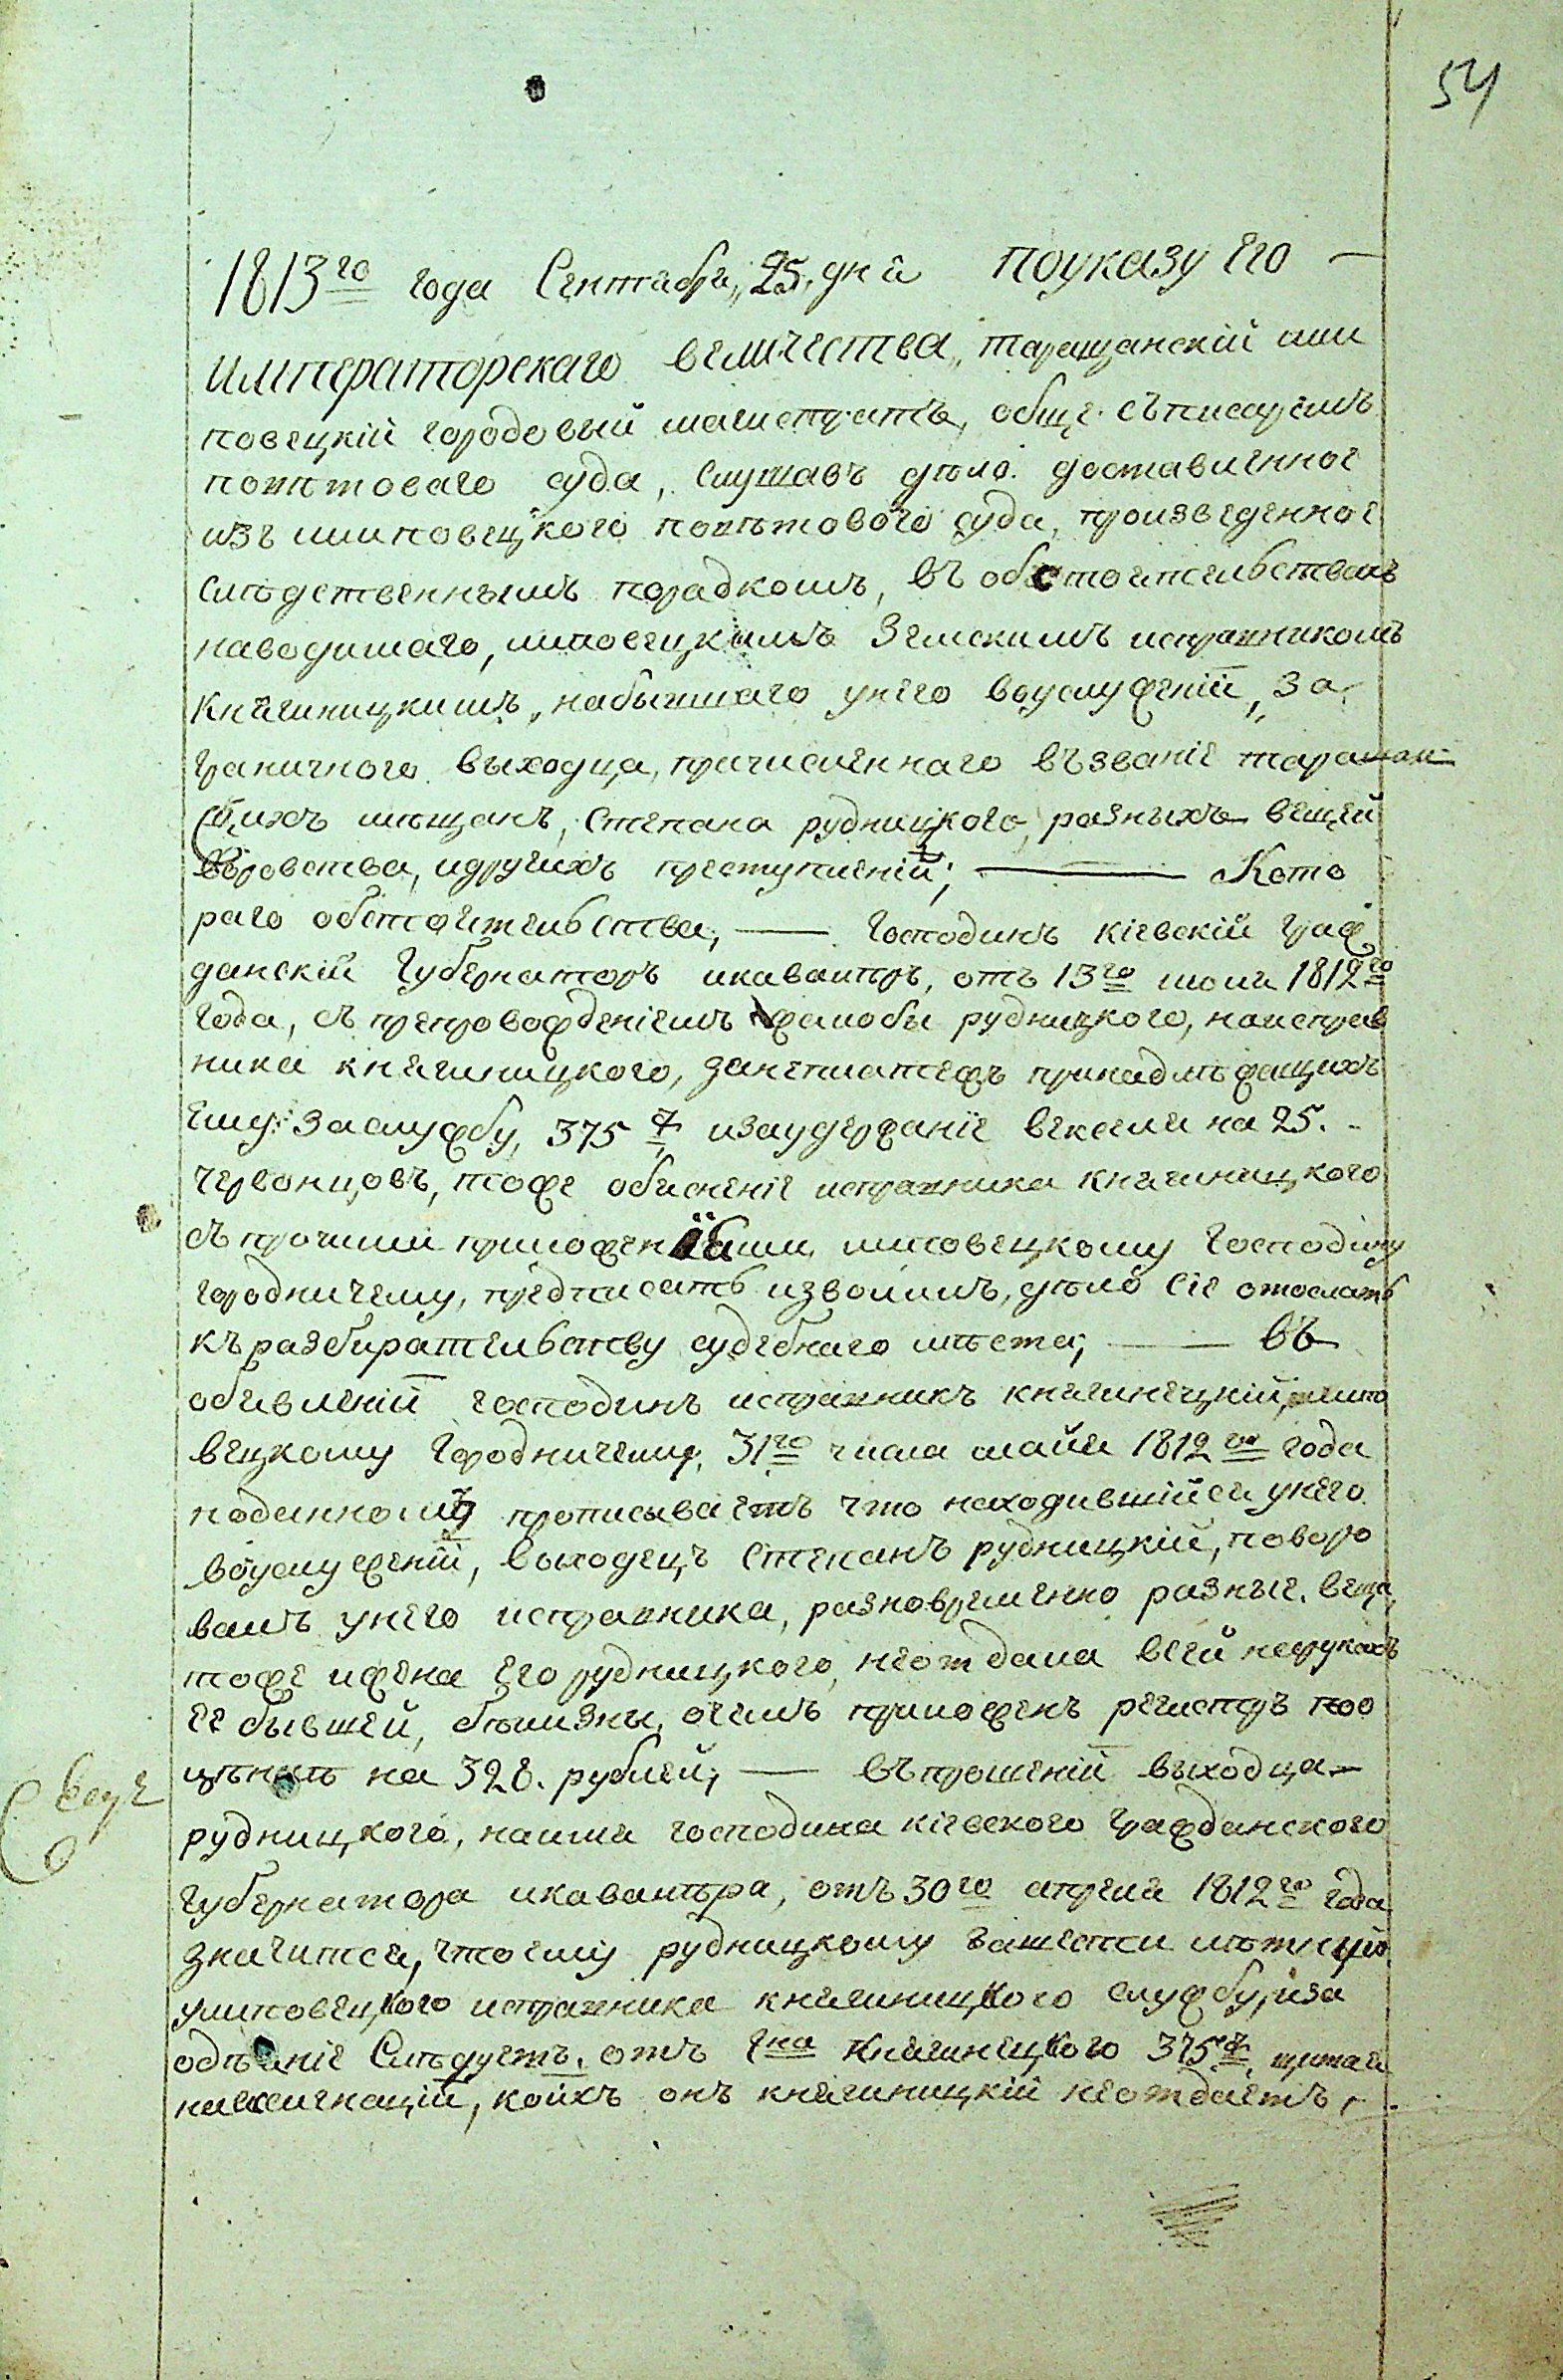 54
1813го года Сентября 25 дня поуказу Его —
Императорскаго величества, таращанскій или
повецкій городовый магистратъ, обще съписаремъ
повѣтоваго суда, Слушавъ дѣло доставленное
изъ липовецкого повѣтового суда, произведенное
Слѣдственнымъ порадкомъ, въ обстоятельствахъ
наводимаго, липовецкимъ Земскимъ исправникомъ
Княгиницкимъ, набывшаго унего воуслуженіи, за
граничного выходца, причисленнаго възваніе таращан
скихъ мѣщанъ, Степана рудницкого, разныхъ вещей
воровства, идругихъ преступленій; — Кото
раго обстоятельства, — Господинъ кіевскій граж
данскій Губернаторъ икавалѣръ, отъ 13го июля 1812го
года, съ препровожденіемъ жалобы рудницкого, наисправ
ника княгиницкого, занеплатежъ принадлѣжащихъ
Ему заслужбу, 375 изаудержаніе векселя на 25.
червонцовъ, тоже обясненіе исправника княгиницкого
съ прочими приложеніями, липовецкому Господину
городничему, предписать изволилъ, дѣло сіе отослать
къ разбирательству судебнаго мѣста; — въ
обявленіи господинъ исправникъ княгинецкій, липо
вецкому Городничему, 31го числа майя 1812го года
поданному прописываетъ что находившійся унего
воуслуженіи, выходецъ Степанъ рудницкій, поворо
валъ унего исправника, разновременно разные веща
тоже ижена Его рудницкого, неотдала всей нарукахъ
Ее бывшей, бѣлизны, очемъ приложенъ регистръ поо
цѣнкѣ на 328. рублей; — въпрошеніи выходца
рудницкого, наимя господина кіевского гражданского
губернатора икавалѣра, отъ 30го апреля 1812го года
значится, чтоему рудницкому зашести лѣтнуй
улиповецкого исправника княгиницкого службу, иза
одѣяніе Слѣдуетъ отъ Гна Княгинецкого 375 щитая
наасигнаціи, коихъ онъ княгиницкій неотдаетъ,